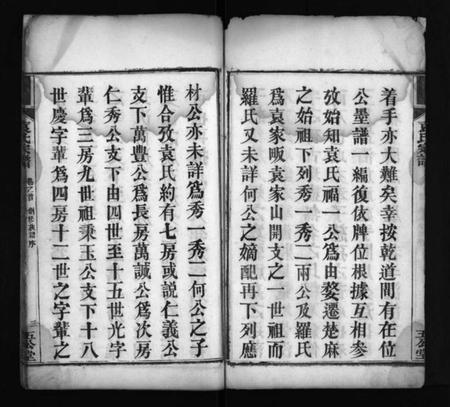 着手亦大難矣幸按乾道間有在位
公墨譜一編復依牌位根據互相參
攷始知袁氏福一公爲由婺遷楚麻
之始祖下列秀一秀二兩公及羅氏
爲袁家畈袁家山開支之一世祖而
羅氏又未詳何公之嫡配再下列應
材公亦未詳爲秀一秀二何公之子
惟合攷袁氏約有七房或說仁義公
支下萬豐公爲長房萬誠公爲次房
仁秀公支下由四世至十五世光字
輩爲三房九世祖秉玉公支下十八
世慶字輩爲四房十二世之字輩之
袁氏宗譜
卷之首
序
五公堂